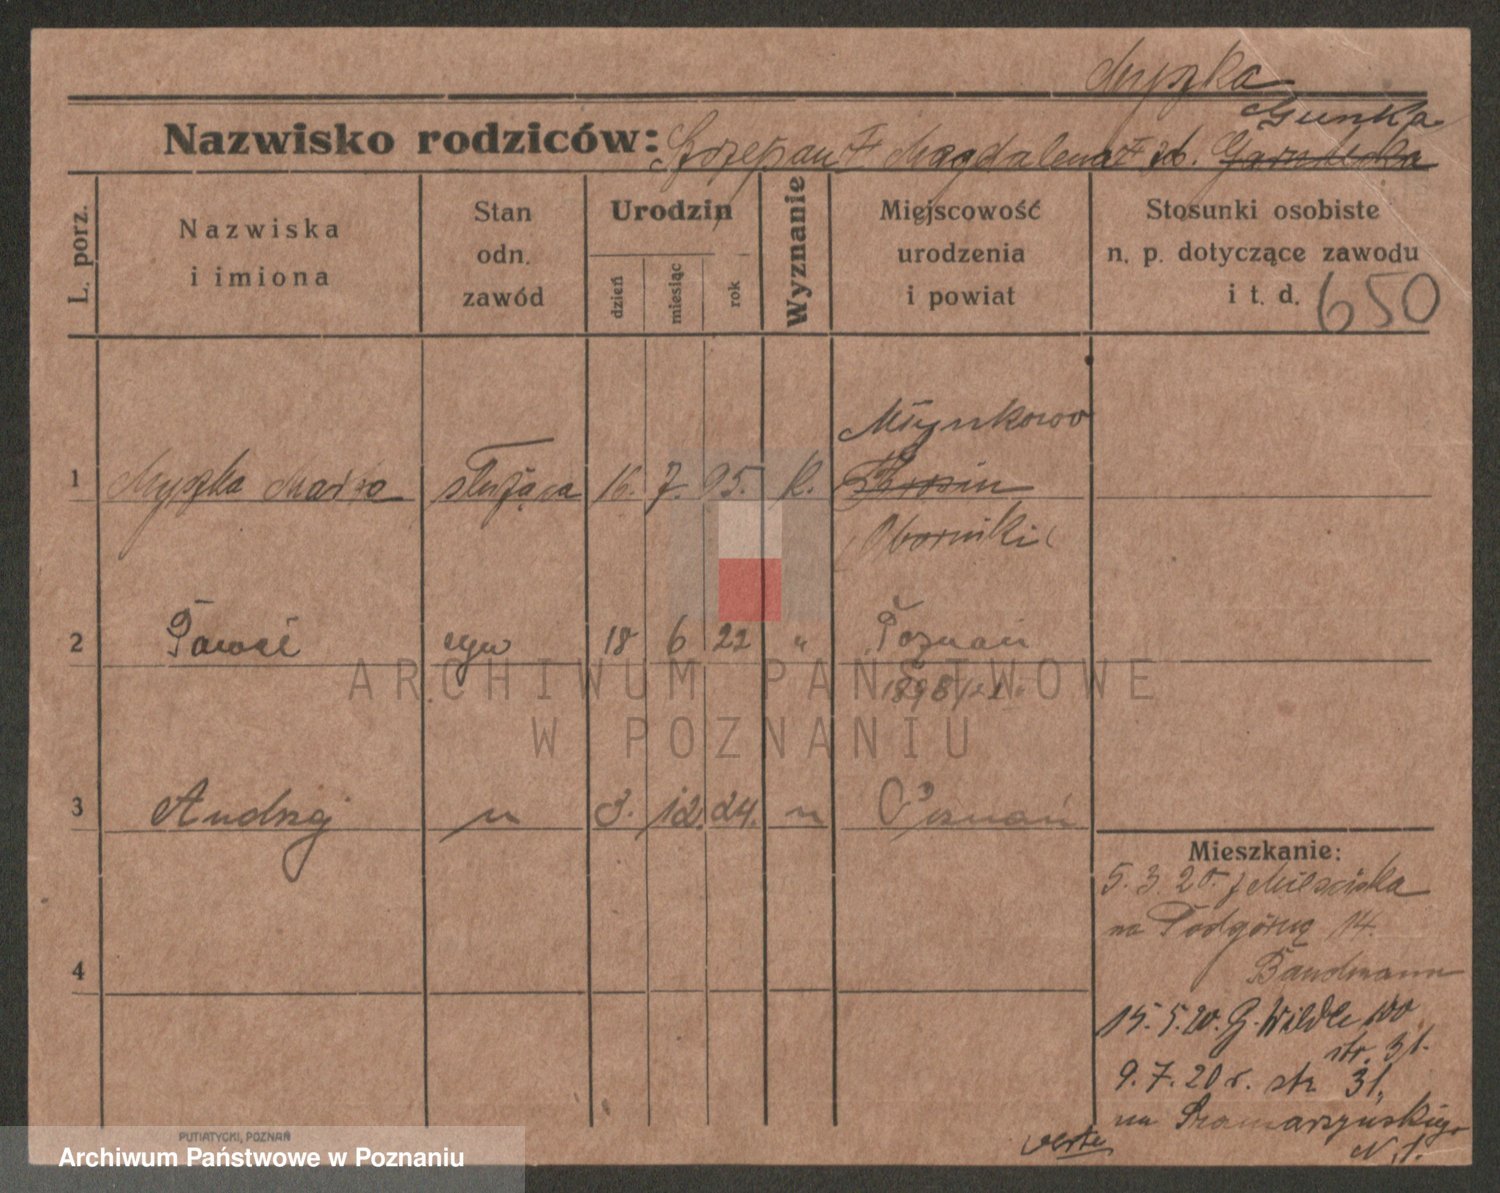 Myszka
Gunka
Nazwisko rodziców: Szczepan Magdalena
L. porz.
Nazwiska
i imiona
Stan
odn.
zawód
Urodzin
dzień
miesiąc
rok
Wyznanie
Miejscowość
urodzenia
i powiat
Stosunki osobiste
n. p. dotyczące zawodu
i t. d. 650
Młynkowo
1 Myszka Marta służąca 16. 7. 95. K.
Oborniki
2 Paweł syn 18 6 22 " Poznań
3 Andrzej " 3. 12. 24. " Poznań
Mieszkanie:
5. 3. 20. z
na Podgórną 14.
Bandmann
4
15. 5. 20. G. Wilde 100
str. 31.
9. 7. 20 r. str 31.
na Szamarzyńskiego
N. 1.
verte
PUTIATYCKI, POZNAŃ
ARCHIWUM PAŃSTWOWE
W POZNANIU
Archiwum Państwowe w Poznaniu